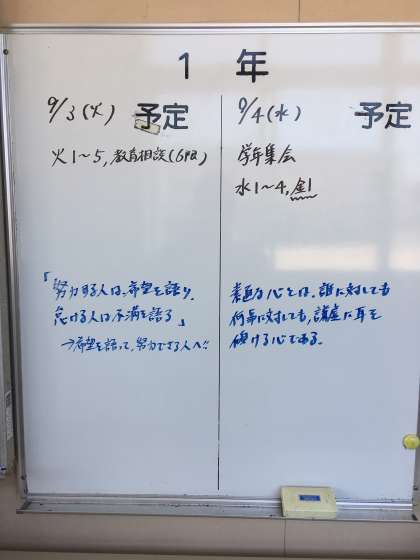 1 年
9/3(火) 予定
火1〜5, 教育相談(6校)
「努力する人は、希望を語り、
怠ける人は不満を語る」
→希望を語って、努力できる人へ!!
9/4(水) 予定
学年集会
水1〜4, 金1
素直な心とは、誰に対しても
何事に対しても、謙虚に耳を
傾ける心である。